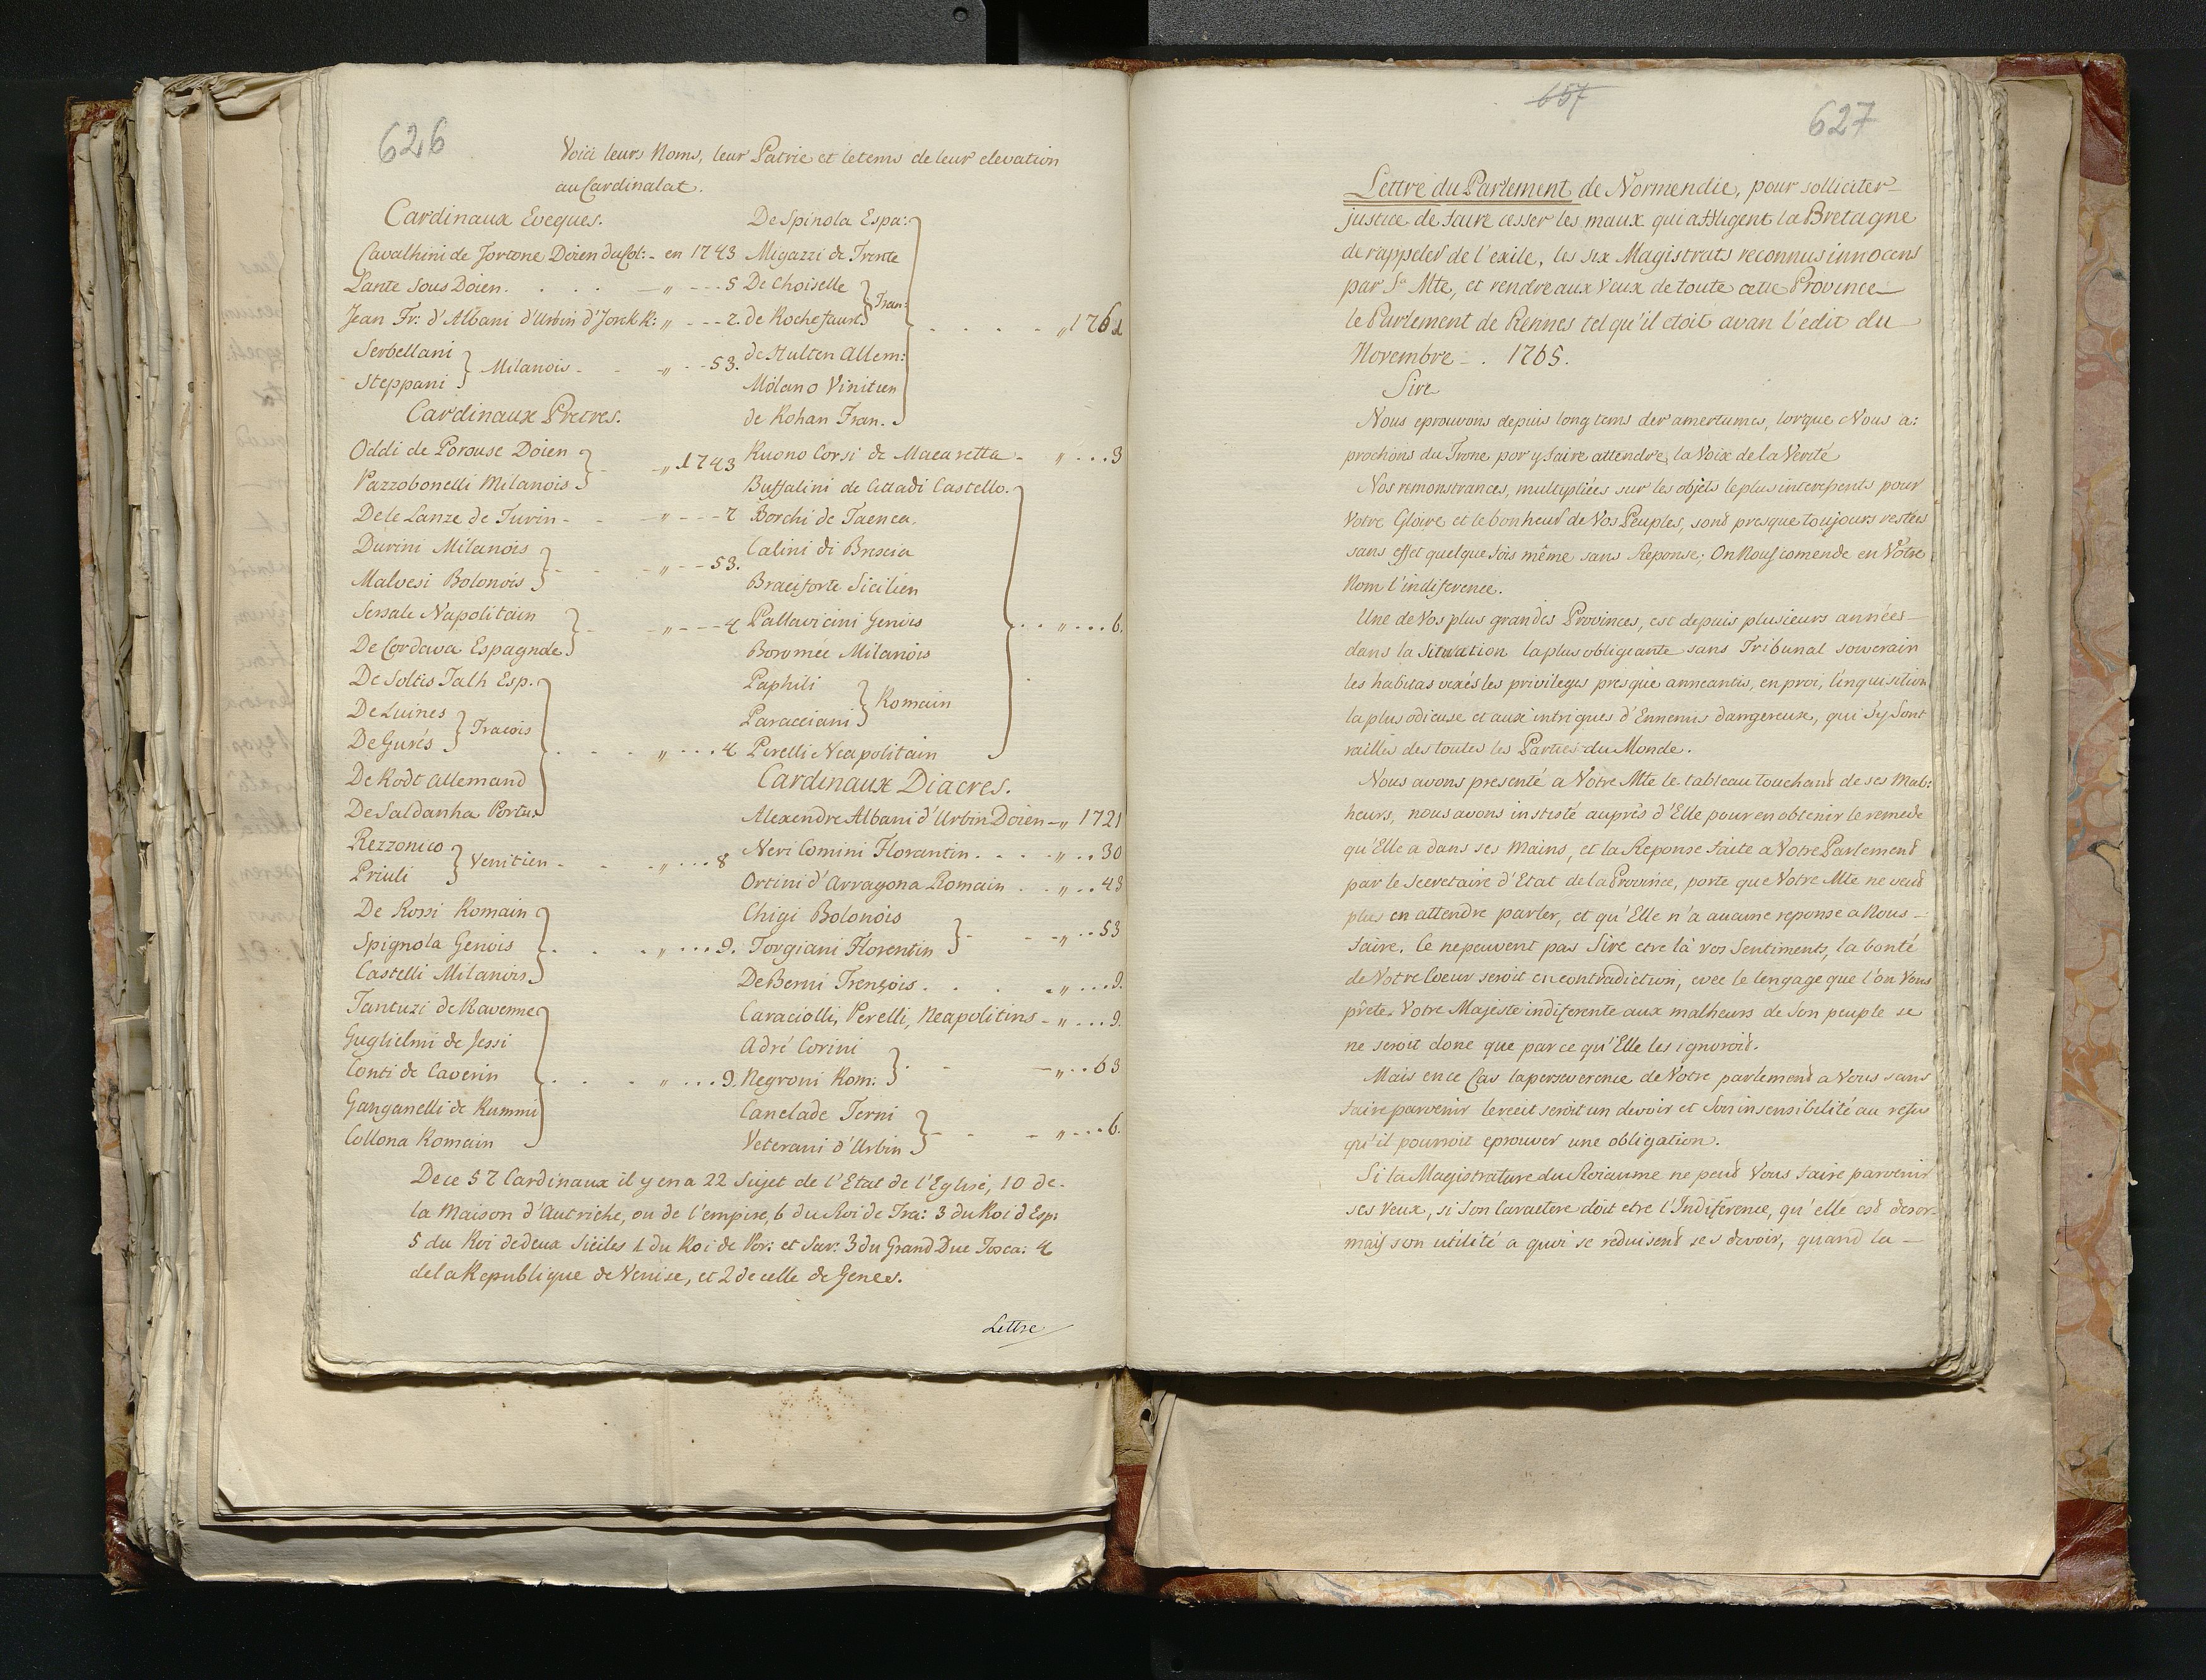 626
Voici leurs Noms, leur Patrie et le tems de leur elevation
au Cardinalat.
Cardinaux Eveques.
Cavalhini de Tortone Doien du Col: - en 1743
Lante sous Doien. . . . — „ - - - 5
Jean Fr: d'Albani d'Urbin d'Jorck R: „ - - - 7.
Serbellani
Steppani } Milanois - - „ - - 53.
Cardinaux Pretres.
Oddi de Porouse Doien
Pazzobonelli Milanois } - „ 1743
De le Lanze de Turin - - „ - - - 7
Durini Milanois
Malvesi Bolonois } - - „ - - 53.
Sersale Napolitain
De Cordava Espagnole } - „ - - - 4
De Soltis Talh Esp.
De Luines
De Gurés } Fracois
De Rodt allemand
De Saldanha Portu: } . . . „ . . . 4
Rezzonico
Priuli } Venitien - . „ . . . 8
De Rossi Romain
Spignola Genois
Castelli Milanois } . . . „ . . . 9.
Fantuzi de Ravenne
Guglielmi de Jessi
Conti de Caverin
Ganganelli de Rummi
Collona Romain } . . . „ . . . 9.
De Spinola Espa:
Migazzi de Trente
De Choiselle
de Rochefaurt } Fran:
de Hulten Allem:
Molano Vinitien
de Rohan Fran. } . . . . „ 1761
Ruono Corsi de Macaretta - „ . . . 3
Buffalini de Cittadi Castello.
Borchi de Faenca.
Calini di Brescia
Braciforte Sicilien
Pallavicini Genois
Boromee Milanois
Paphili
Paracciani } Romain
Perelli Neapolitain } . . „ . . . 6.
Cardinaux Diacres.
Alexendre Albani d'Urbin Doien - „ 1721
Neri Comini Florantin . . . . „ . . 30
Ortini d'Arragona Romain . . „ . . 43
Chigi Bolonois
Torgiani Florentin } - - „ . . 53
De Berni Trençois . . . „ . . . 9.
Caraciolli, Perelli, Neapolitins - „ . . . 9.
Adré Corini
Negroni Rom: } . - — „ . . 63
Canelade Terni
Veterani d'Urbin } - - - „ . . . 6.
De ce 57 Cardinaux il y en a 22 Sujet de l'Etat de l'Eglise, 10 de-
la Maison d'Autriche, ou de l'empire, 6 du Roi de Fra: 3 du Roi d'Esp:
5 du Roi de deux Siciles 1 du Roi de Por: et Sar: 3 du Grand Duc Tosca: 4
de la Republique de Venise, et 2 de celle de Genes.
Lettre
657
627
Lettre du Parlement de Normendie, pour solliciter-
justice de faire cesser les maux qui affligent la Bretagne
de rappeler de l'exile, les six Magistrats reconnus innocens
par Sa Mte, et rendre aux Veux de toute cette Province-
le Parlement de Rennes tel qu'il étoit avan l'edit du
Novembre - . 1765.
Sire
Nous eprouvons depuis long tems der amertumes, lorque Nous a:
prochons du Trone por y faire attendre, la Voix de la Verité
Nos remonstrances, multipliées sur les objets le plus interessents pour
Votre Gloire et le bonheur de Vos Peuples, sond presque toujours restées
sans effet quelque fois même sans Reponse; On Nous comende en Votre
Nom l'indiference.
Une de Vos plus grandes Provinces, est depuis plusieurs années-
dans la Situation la plus obligeante sans Tribunal souverain
les habitas vexés les privileges presque anneantis, en proi, l'inquisition
la plus odieuse et aux intrigues d'Ennemis dangereux, qui s'y sont
raillés des toutes les Parties du Monde.
Nous avons presenté a Votre Mte le tableau touchand de ses Mal:
heurs, nous avons insisté auprès d'Elle pour en obtenir le remede
qu'Elle a dans ses Mains, et la Reponse faite a Votre Parlemend
par le Secretaire d'Etat de la Province, porte que Votre Mte ne veud
plus en attendre parler, et qu'Elle n'a aucune reponse a Nous -
faire. Ce ne peuvent pas Sire etre là vos Sentiments, la bonté
de Votre Coeur seroit en contradiction, evec le lengage que l'on Vous
prête. Votre Majeste indiferente aux malheurs de son peuple se
ne seroit donc que parce qu'Elle les ignoroid.
Mais en ce Cas la perseverence de Votre parlemend a Vous sans
faire parvenir le recit seroit un devoir et son insensibilité au refus
qu'il pourroit eprouver une obligation.
Si la Magistrature du Roiaume ne peud Vous faire parvenir
ses Veux, si son Caractere doit etre l'Indiference, qu'elle est desor-
mais son utilité a quoi se reduisend ses devoir, quand la -